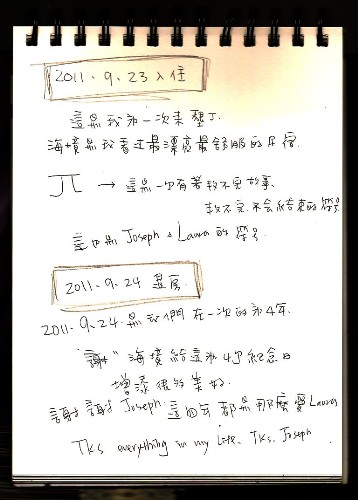 2011.9.23 入住
這是我第一次來墾丁.
海境是我看過最漂亮最舒服的民宿.
π → 這是一個有著數不完故事.
數不完.不會結束的符號
這也是 Joseph & Laura 的符號.
2011.9.24 退房
2011.9.24.是我們在一次的第4年.
謝謝"海境給這第4個紀念日
增添很多美好.
謝謝 謝謝 Joseph. 這四年都是那麼愛 Laura
Tks everything in my life. Tks. Joseph.